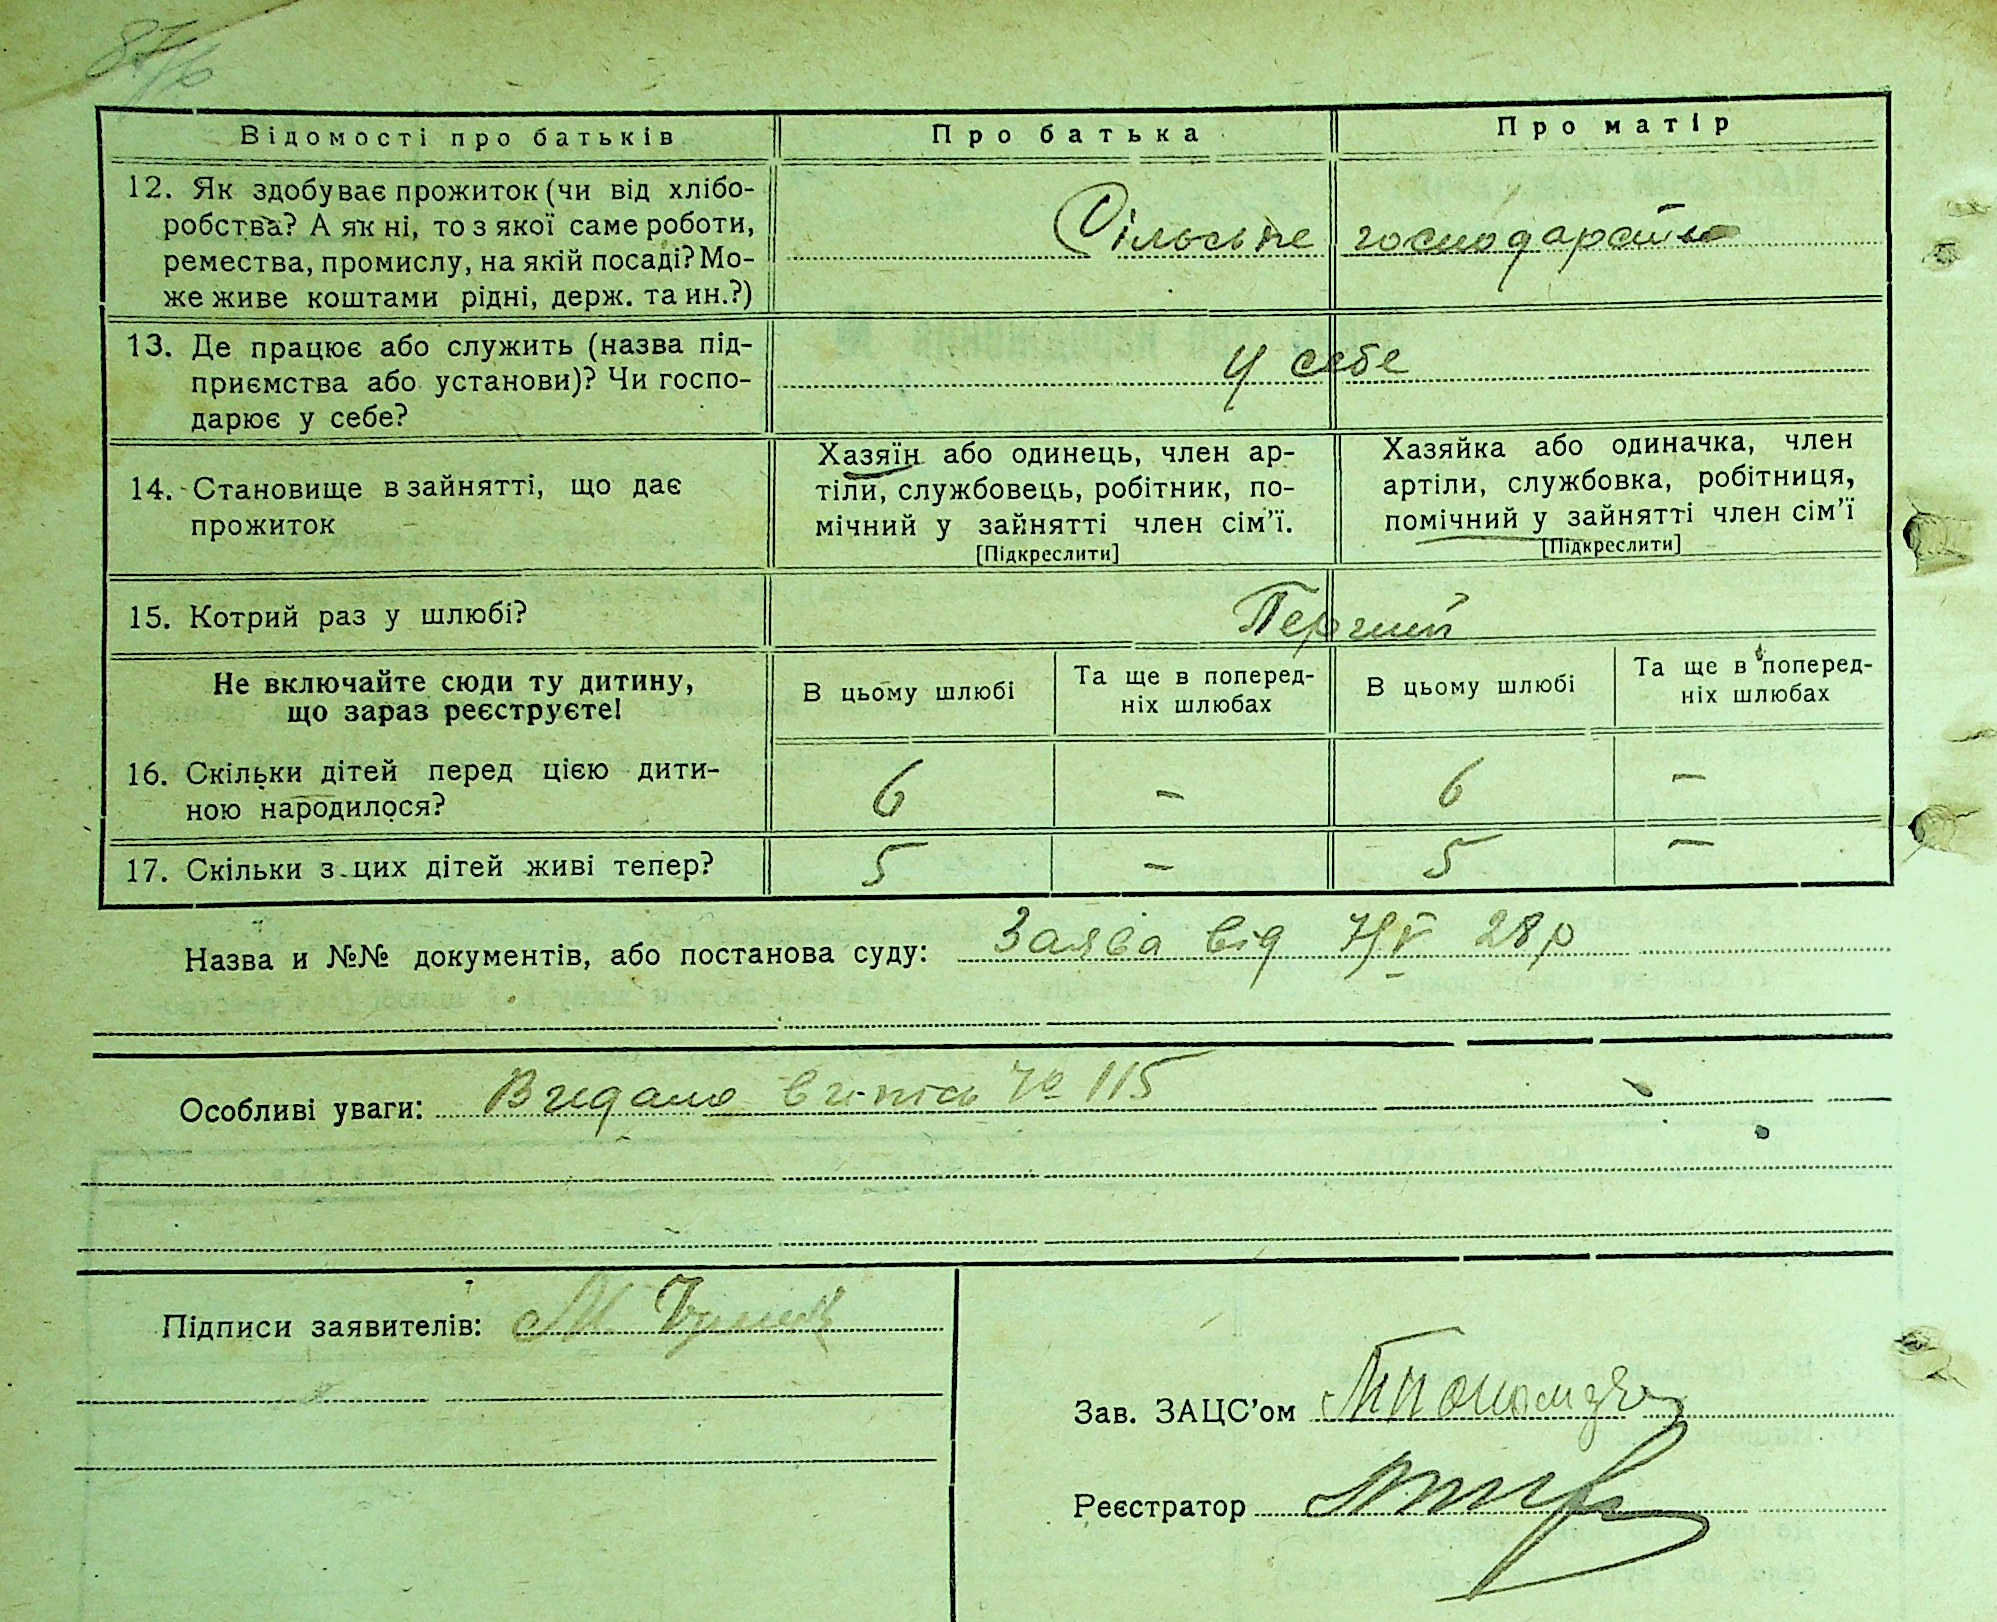 87/6
Відомості про батьків
Про батька
Про матір
12. Як здобуває прожиток (чи від хлібо-
робства? А як ні, то з якої саме роботи,
ремества, промислу, на якій посаді? Мо-
же живе коштами рідні, держ. та ин.?)
Сільське господарство
13. Де працює або служить (назва під-
приємства або установи)? Чи госпо-
дарює у себе?
У себе
14. Становище в зайнятті, що дає
прожиток
Хазяїн або одинець, член ар-
тіли, службовець, робітник, по-
мічний у зайнятті член сім'ї.
[Підкреслити]
Хазяйка або одиначка, член
артіли, службовка, робітниця,
помічний у зайнятті член сім'ї
[Підкреслити]
15. Котрий раз у шлюбі?
Перший
Не включайте сюди ту дитину,
що зараз реєструєте!
В цьому шлюбі
Та ще в поперед-
ніх шлюбах
В цьому шлюбі
Та ще в поперед-
ніх шлюбах
16. Скільки дітей перед цією дити-
ною народилося?
6 – 6 –
17. Скільки з цих дітей живі тепер?
5 – 5 –
Назва и №№ документів, або постанова суду: Заява від 7/V 28 р
Особливі уваги: Видано випись № 115
Підписи заявителів: М
Зав. ЗАЦС'ом
Реєстратор